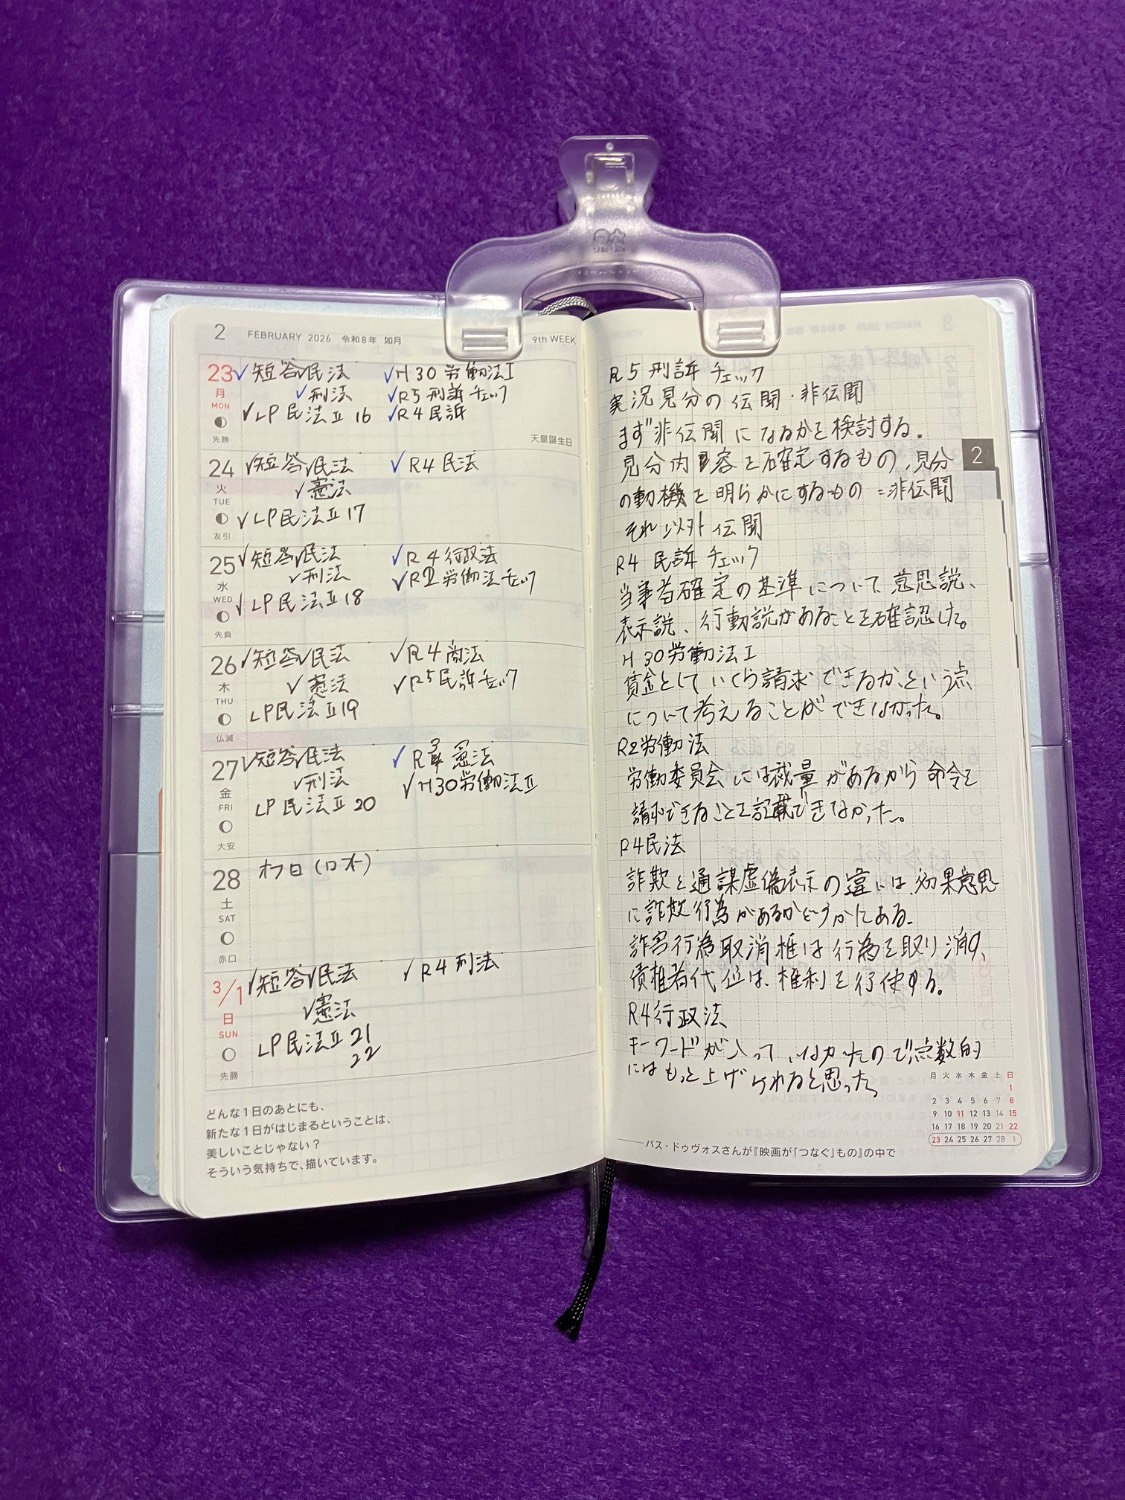 2 FEBRUARY 2026 令和8年 如月 9th WEEK
23 月 MON 先勝
✓短答✓民法 ✓H30労働法Ⅰ
✓刑法 ✓R5刑訴チェック
✓LP民法Ⅱ16 ✓R4民訴
天皇誕生日
24 火 TUE 友引
✓短答✓民法 ✓R4民法
✓憲法
✓LP民法Ⅱ17
25 水 WED 先負
✓短答✓民法 ✓R4行政法
✓刑法 ✓R2労働法チェック
✓LP民法Ⅱ18
26 木 THU 仏滅
✓短答✓民法 ✓R4商法
✓憲法 ✓R5民訴チェック
LP民法Ⅱ19
27 金 FRI 大安
✓短答✓民法 ✓R4憲法
✓刑法 ✓H30労働法Ⅱ
LP民法Ⅱ20
28 土 SAT 赤口
オフ日(ロオ)
3/1 日 SUN 先勝
✓短答✓民法 ✓R4刑法
✓憲法
LP民法Ⅱ21
22
どんな1日のあとにも、
新たな1日がはじまるということは、
美しいことじゃない?
そういう気持ちで、描いています。
R5刑訴チェック
実況見分の伝聞・非伝聞
まず非伝聞になるかを検討する。
見分内容を確定するもの、見分
の動機を明らかにするもの=非伝聞
それ以外伝聞
R4民訴チェック
当事者確定の基準について意思説、
表示説、行動説があることを確認した。
H30労働法Ⅰ
賃金としていくら請求できるか、という点
について考えることができなかった。
R2労働法
労働委員会には裁量があるから命令を
請求できることを記載できなかった。
R4民法
詐欺と通謀虚偽表示の違いは、効果意思
に詐欺行為があるかどうかにある。
詐害行為取消権は行為を取り消す、
債権者代位は、権利を行使する。
R4行政法
キーワードが入っていなかったので点数的
にはもっと上げられると思った。
2
月 火 水 木 金 土 日
1
2 3 4 5 6 7 8
9 10 11 12 13 14 15
16 17 18 19 20 21 22
23 24 25 26 27 28 1
――バス・ドゥヴォスさんが『映画が「つなぐ」もの』の中で